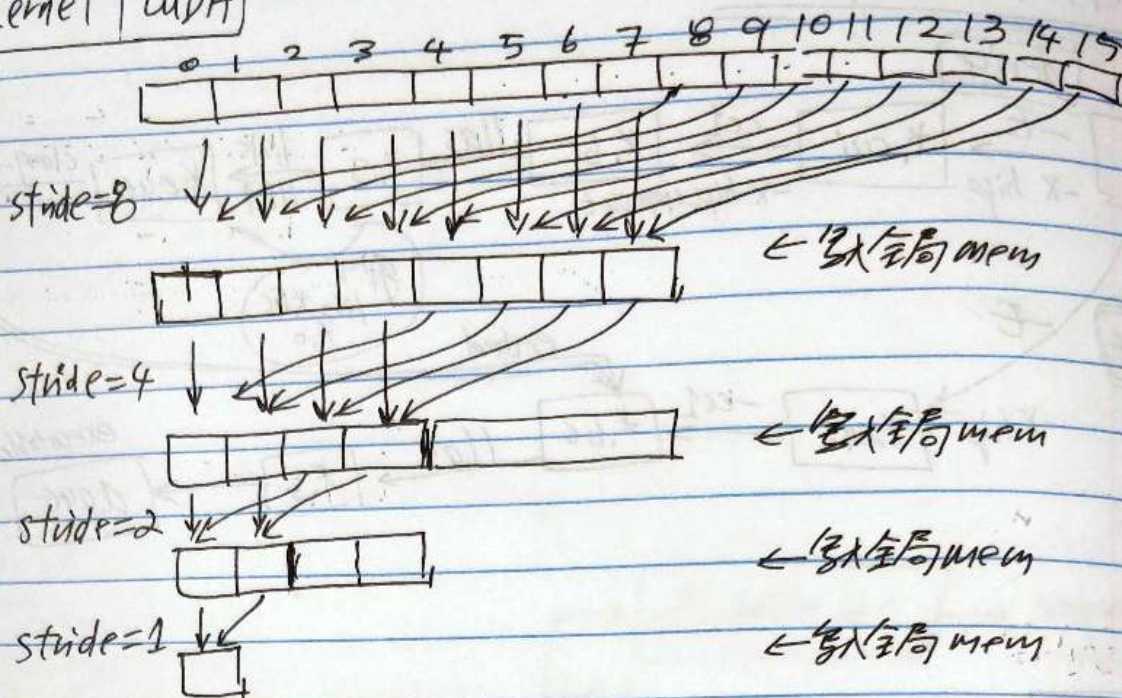 kernel CUDA
0 1 2 3 4 5 6 7 8 9 10 11 12 13 14 15
stride=8
←写入全局mem
stride=4
←写入全局mem
stride=2
←写入全局mem
stride=1
←写入全局mem